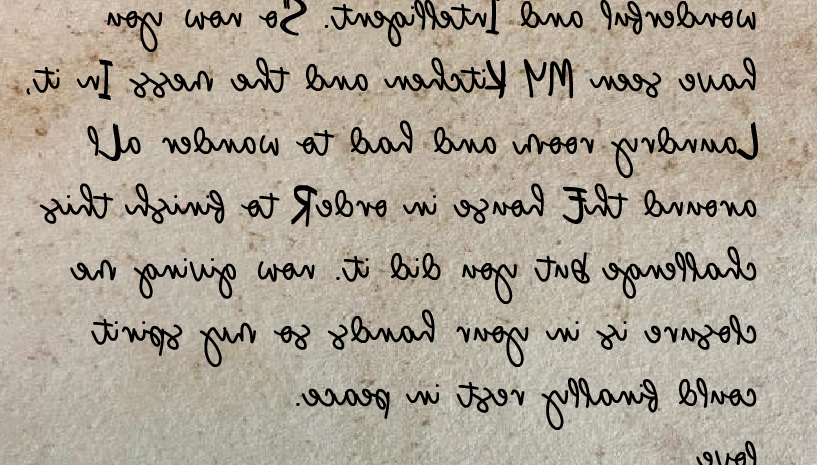 wonderful and Intelligent. So now you
have seen MY Kitchen and the mess In it,
Laundry room and had to wander aLl
around thE house in ordeR to finish this
challenge But you did it. now giving me
closure is in your hands so my spirit
could finally rest in peace.
love